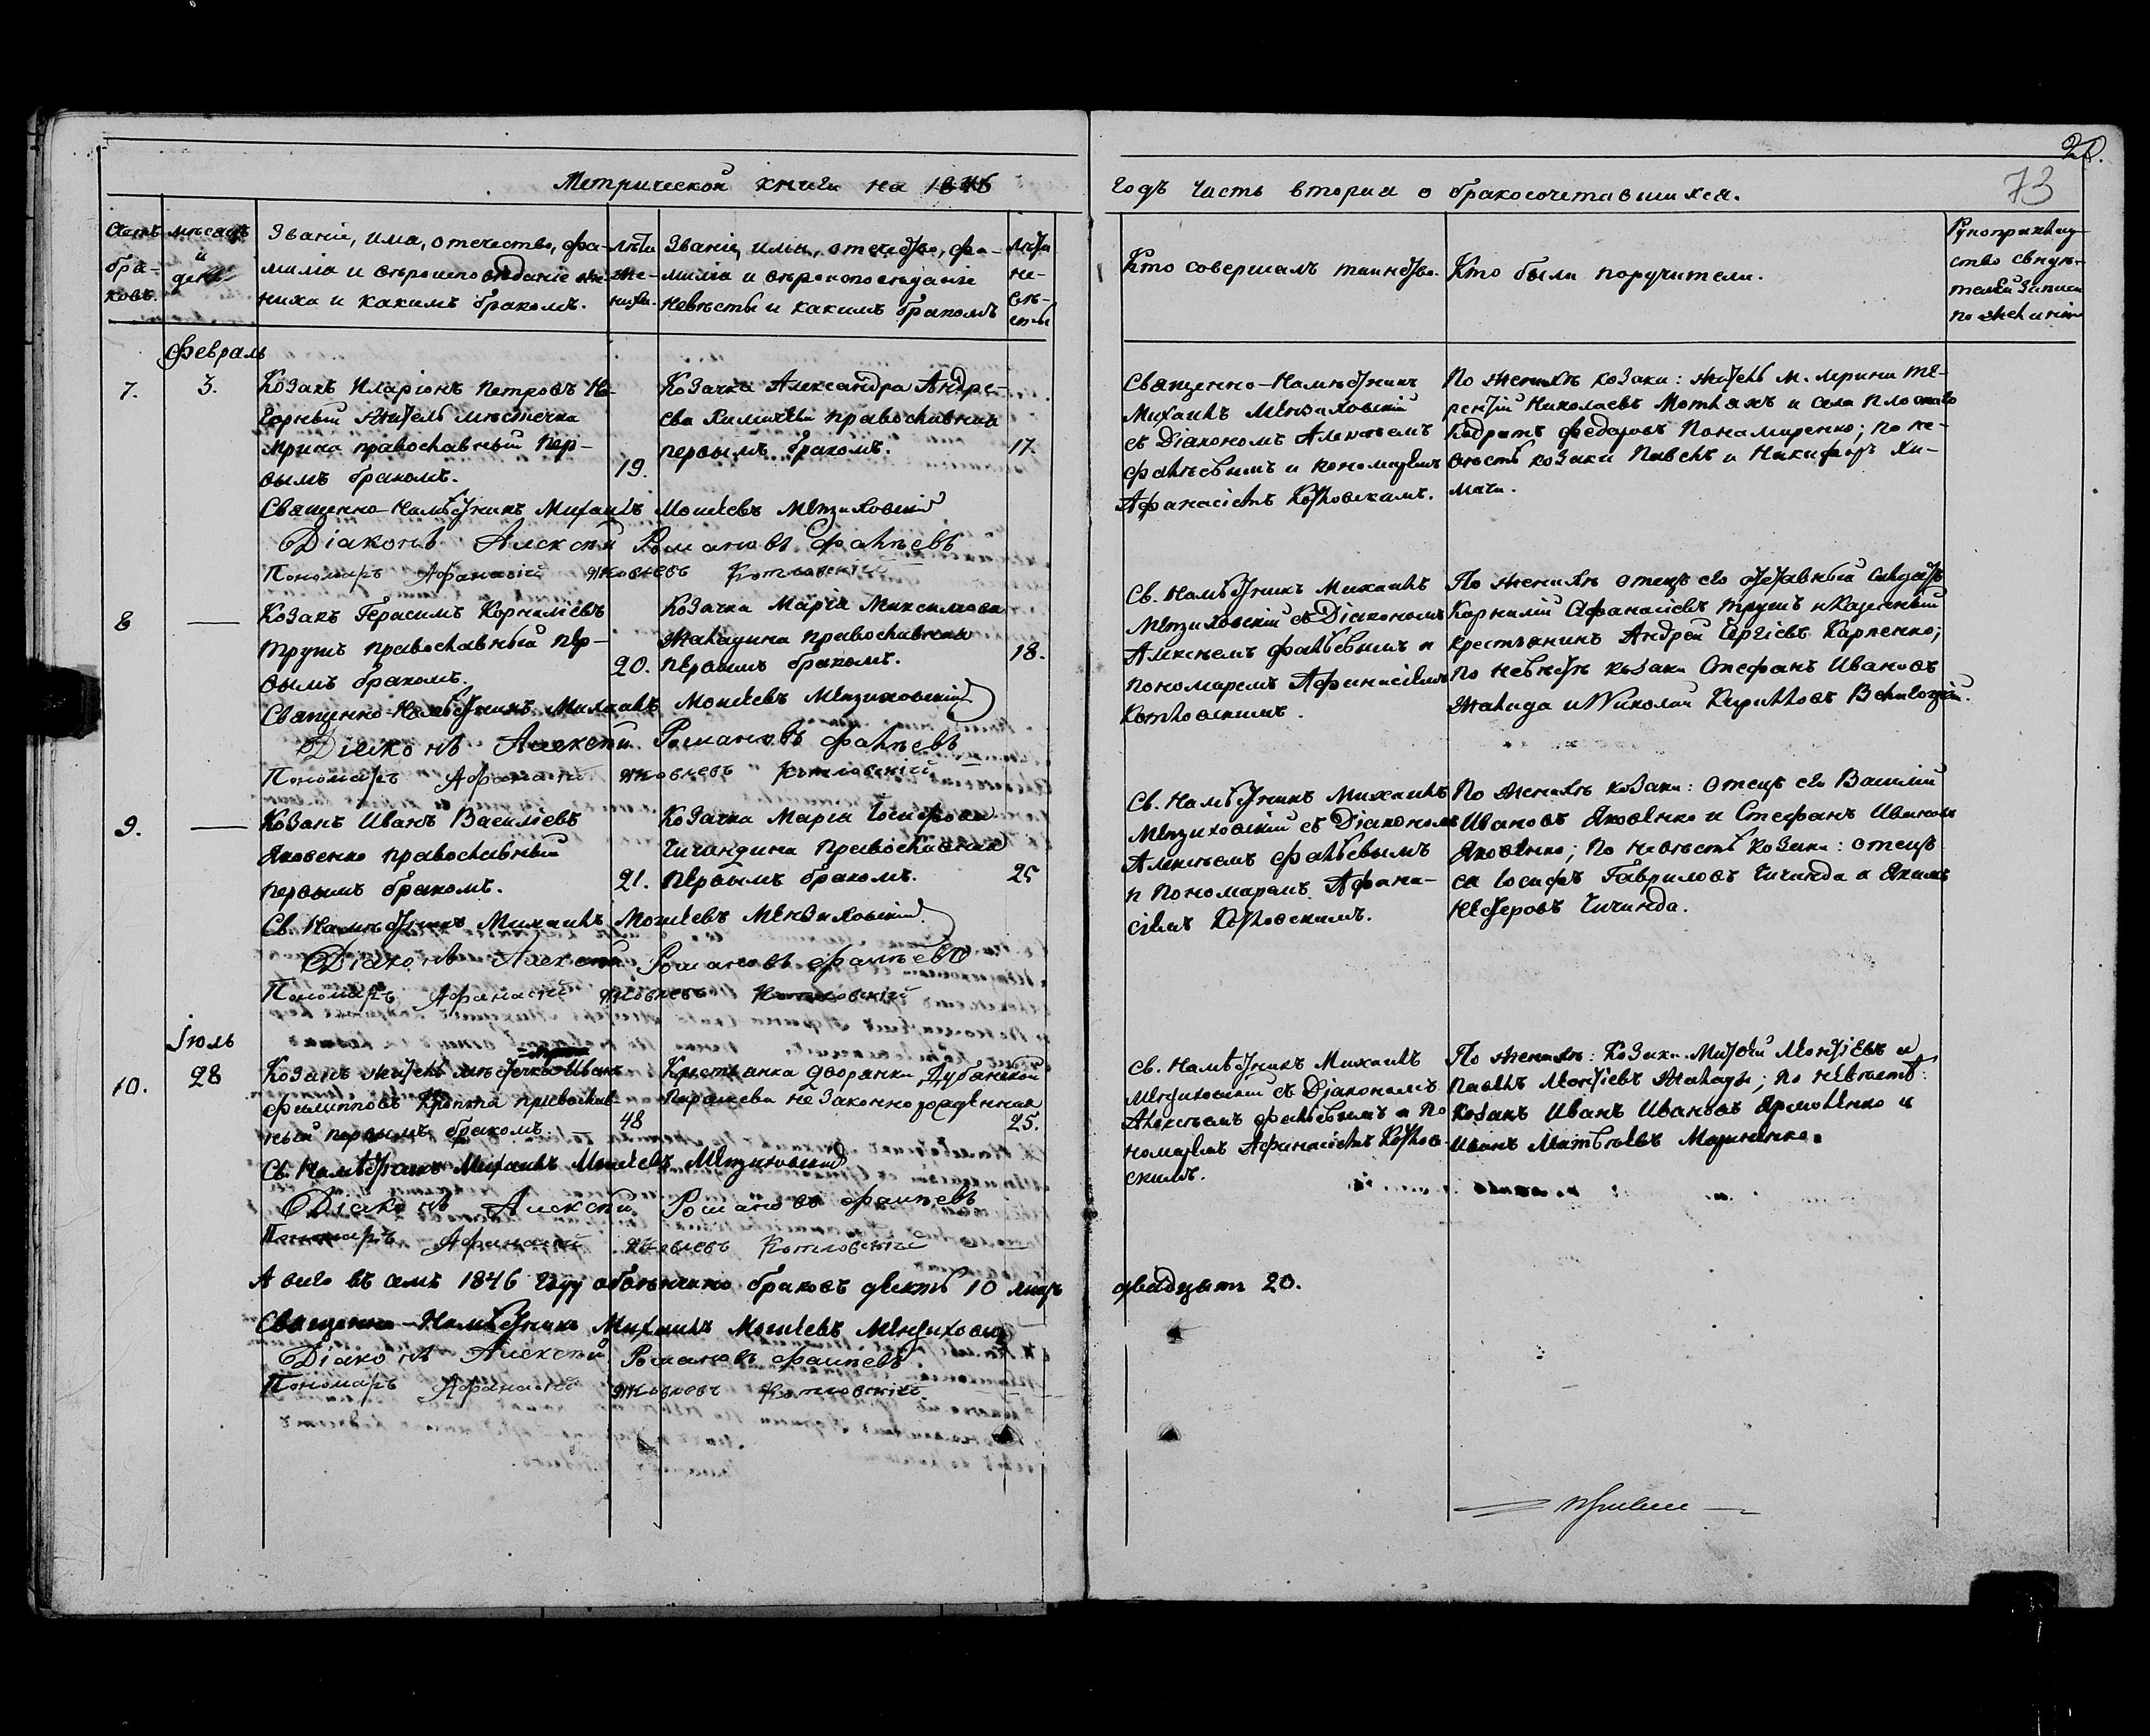 20.
73
Метрической книги на 1846
годъ часть вторая о бракосочетавшихся.
Счетъ браковъ.
мѣсяцъ и день
Званіе, имя, отечество, фа-
милія и вѣроисповѣданіе же-
ниха и какимъ бракомъ.
лѣта же-
ниха.
Званіе, имя, отечество, фа-
милія и вѣроисповѣданіе
невѣсты и какимъ бракомъ
лѣта не-
вѣ-
сты
Кто совершалъ таинство.
Кто были поручители.
Рукоприклад-
ство свидѣ-
телей записи
по желанію
Февраль
7.
3.
Козакъ Иларіонъ Петровъ
житель мѣстечка
Мрина православный пер-
вымъ бракомъ.
19.
Козачка Александра Андре-
ева православная
первымъ бракомъ.
17.
Священно-Намѣстникъ
Михаилъ Мензиховскій
съ Діакономъ Алексѣемъ
Фалѣевымъ и пономаремъ
Афанасіемъ Котловскимъ.
По женихѣ козаки: житель м. Мрина Те-
рентій Николаевъ и села Плоскаго
Федоровъ Понамаренко; по не-
вѣстѣ козаки Павелъ и Никифоръ Хи-
мичи.
Священно-Намѣстникъ Михаилъ Моисеевъ Мензиховскій
Діаконъ Алексѣй Романовъ Фалѣевъ
Пономарь Афанасій Яковлевъ Котловскій
8
Козакъ Герасимъ Корниліевъ
Трушъ православный пер-
вымъ бракомъ.
20.
Козачка Марія Максимова
православная
первымъ бракомъ.
18.
Св. Намѣстникъ Михаилъ
Мензиховскій съ Діакономъ
Алексѣемъ Фалѣевымъ и
пономаремъ Афанасіемъ
Котловскимъ.
По женихѣ отецъ его отставный солдатъ
Корнилій Афанасіевъ Трушъ и казенный
крестьянинъ Андрей Сергіевъ Карпенко;
по невѣстѣ козаки Стефанъ Ивановъ
и Николай Кириловъ
Священно-Намѣстникъ Михаилъ Моисеевъ Мензиховскій
Діаконъ Алексѣй Романовъ Фалѣевъ
Пономарь Афанасій Яковлевъ Котловскій
9.
Козакъ Иванъ Василіевъ
Яковенко православный
первымъ бракомъ.
21.
Козачка Марія Іосифова
Чичандина православная
первымъ бракомъ.
25
Св. Намѣстникъ Михаилъ
Мензиховскій съ Діакономъ
Алексѣемъ Фалѣевымъ
и Пономаремъ Афана-
сіемъ Котловскимъ.
По женихѣ козаки: отецъ его Василій
Ивановъ Яковенко и Стефанъ Ивановъ
Яковенко; по невѣстѣ козаки: отецъ
ея Іосифъ Гавриловъ Чичинда и Якимъ
Несторовъ Чичинда.
Св. Намѣстникъ Михаилъ Моисеевъ Мензиховскій
Діаконъ Алексѣй Романовъ Фалѣевъ
Пономарь Афанасій Яковлевъ Котловскій
Іюль
10.
28
Козакъ житель мѣстечка Иванъ
Филипповъ православ-
ный первымъ бракомъ.
48
Крестьянка дворянки
незаконнорожденная
25.
Св. Намѣстникъ Михаилъ
Мензиховскій съ Діакономъ
Алексѣемъ Фалѣевымъ и По-
номаремъ Афанасіемъ Котлов-
скимъ.
По женихѣ: козаки
Павелъ; по невѣстѣ:
козакъ Иванъ Ивановъ Ярмоленко и
Иванъ Матвѣевъ Мариненко.
Св. Намѣстникъ Михаилъ Моисеевъ Мензиховскій
Діаконъ Алексѣй Романовъ Фалѣевъ
Пономарь Афанасій Яковлевъ Котловскій
А всего въ семъ 1846 году обвѣнчано браковъ десять 10 лицъ
двадцать 20.
Священно-Намѣстникъ Михаилъ Моисеевъ Мензиховскій
Діаконъ Алексѣй Романовъ Фалѣевъ
Пономарь Афанасій Яковлевъ Котловскій